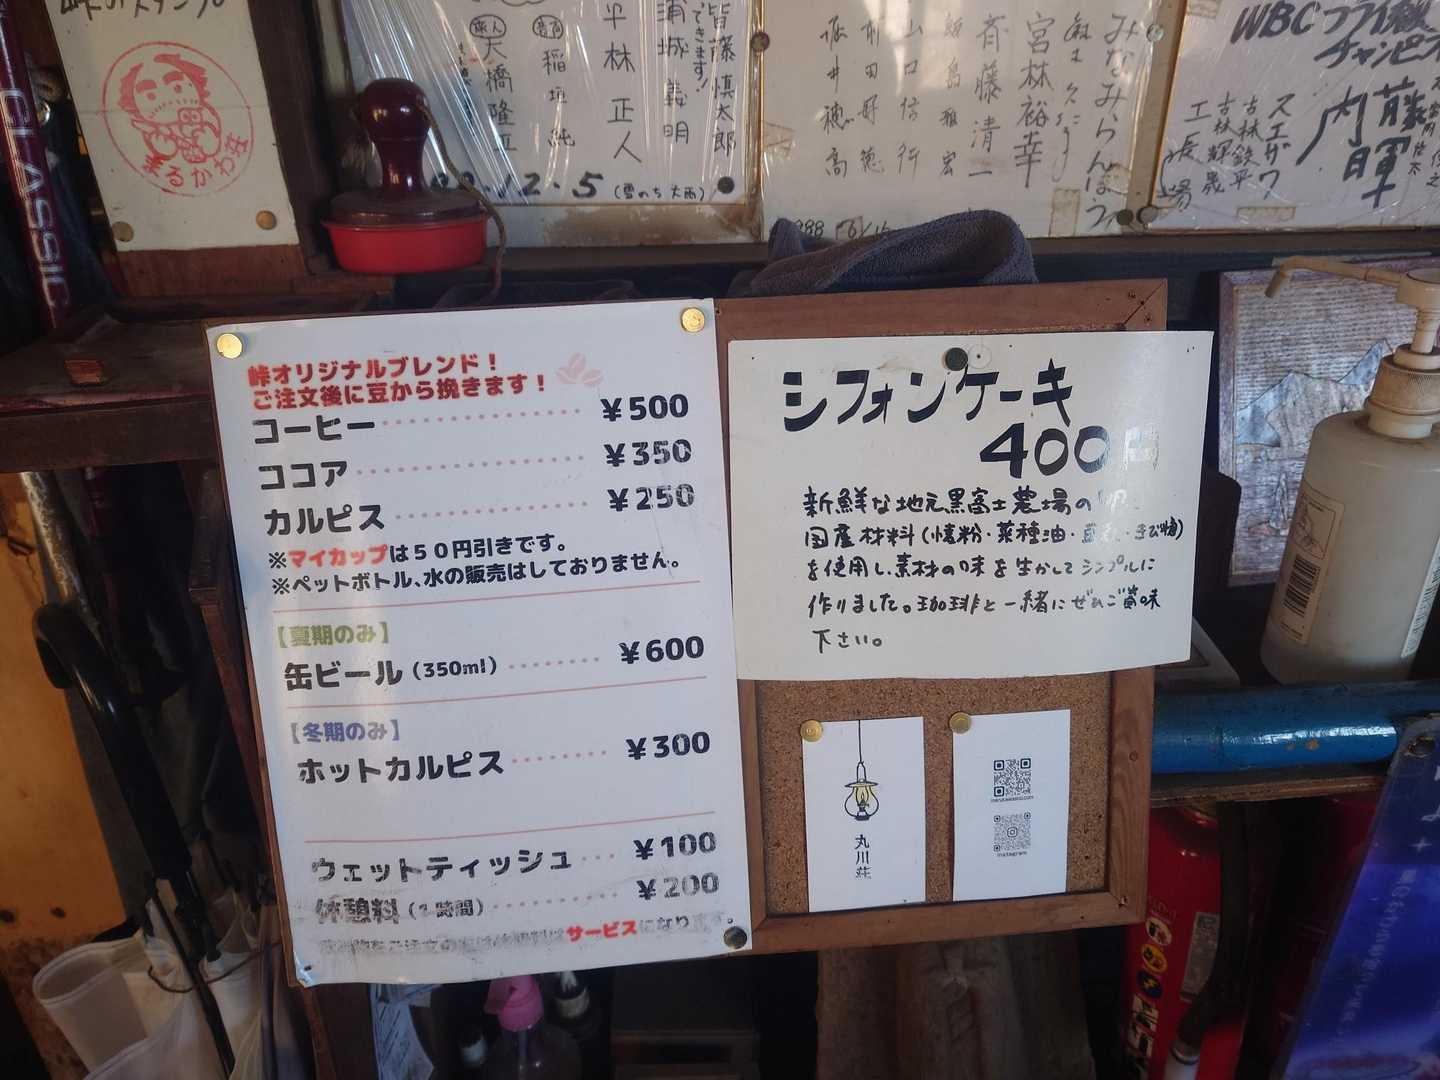 峠のスタンプ
まるかわ荘
CLASSIC
皆藤慎太郎
できます!
浦城義明
平林正人
稲垣純
大橋隆
12.5(雪のち大雨)
みなみらんぼう
宮林裕幸
斉藤清二
山口信行
WBCフライ級
チャンピオ
内藤
スエザワ
古林鉄平
古林輝歳
工場長
峠オリジナルブレンド!
ご注文後に豆から挽きます!
コーヒー ¥500
ココア ¥350
カルピス ¥250
※マイカップは50円引きです。
※ペットボトル、水の販売はしておりません。
【夏期のみ】
缶ビール(350ml) ¥600
【冬期のみ】
ホットカルピス ¥300
ウェットティッシュ ¥100
休憩料(1時間) ¥200
サービスになります。
シフォンケーキ
400円
新鮮な地元黒富士農場の
国産材料(薄粉・菜種油・きび糖)
を使用し、素材の味を生かしてシンプルに
作りました。珈琲と一緒にぜひご賞味
下さい。
丸川荘
instagram